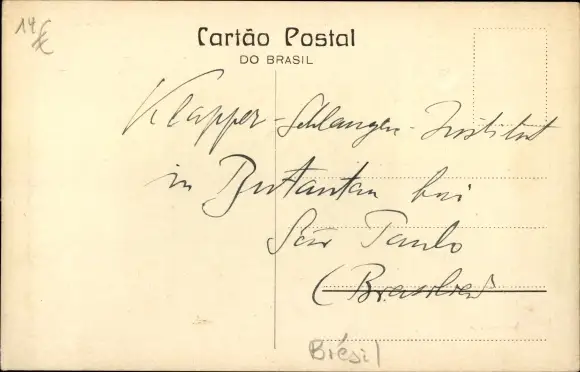 14 €
Cartão Postal
DO BRASIL
Klapper-Schlangen-Institut
in Butantan bei
São Paulo
(Brasilien)
Brésil